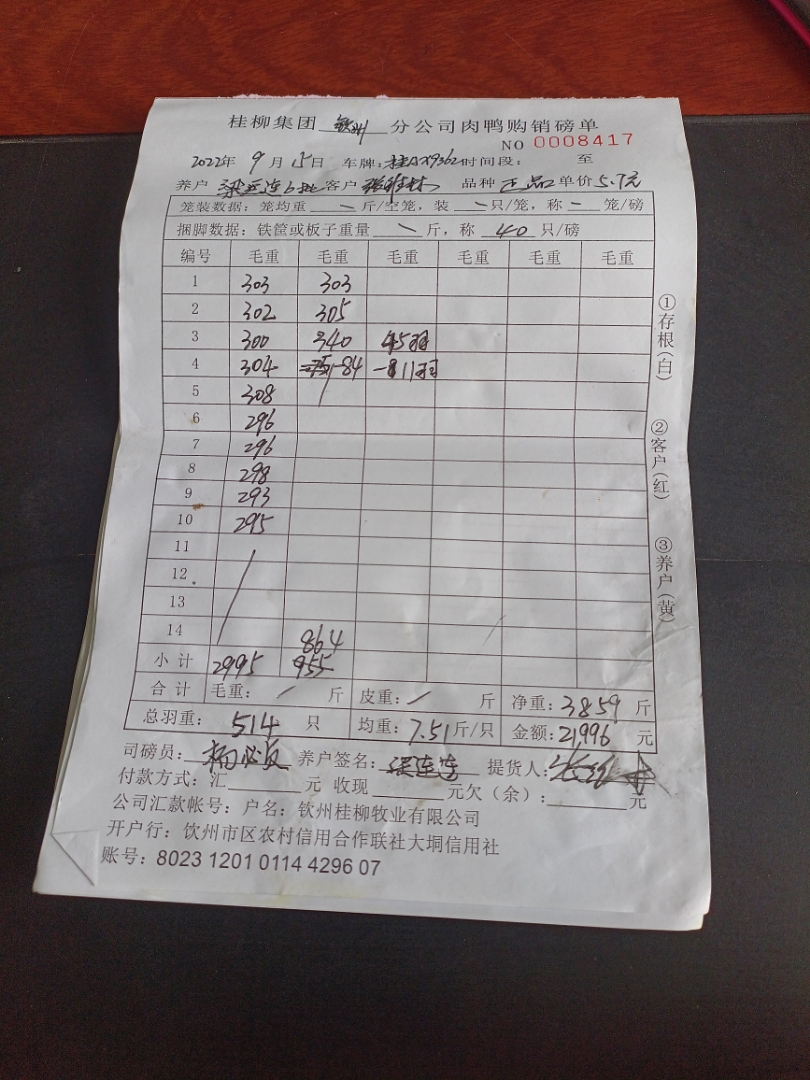 桂柳集团 钦州 分公司肉鸭购销磅单
NO 0008417
2022年 9 月 15日 车牌:桂AX9362时间段: 至
养户 梁连连6批 客户 品种 正品2 单价5.7元
笼装数据:笼均重 一 斤/空笼,装 一 只/笼,称 一 笼/磅
捆脚数据:铁筐或板子重量 一 斤,称 40 只/磅
编号 毛重 毛重 毛重 毛重 毛重 毛重
1 303 303
2 302 305
3 300 340 45羽
4 304 -84 -11羽
5 308
6 296
7 296
8 298
9 293
10 295
11
12
13
14 864
小计 2995 955
合计 毛重: / 斤 皮重: / 斤 净重:3859 斤
总羽重: 514 只 均重:7.51斤/只 金额:21996 元
司磅员: 养户签名:梁连连 提货人:
付款方式:汇 元 收现 元欠(余): 元
公司汇款帐号:户名:钦州桂柳牧业有限公司
开户行:钦州市区农村信用合作联社大垌信用社
账号:8023 1201 0114 4296 07
①存根(白)
②客户(红)
③养户(黄)